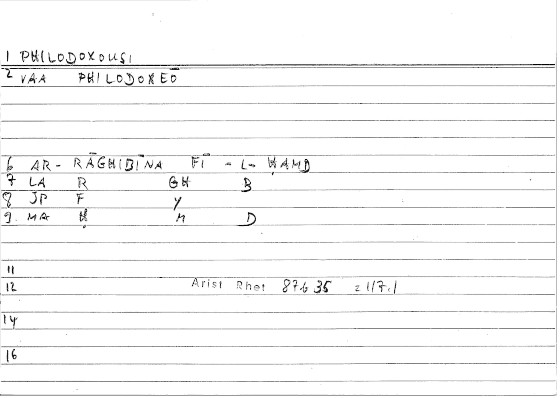 1 PHILODOXOUSI
2 VAA PHILODOXEŌ
6 AR-RĀGHIBĪNA FĪ-L-ḤAMD
7 LA R GH B
8 JP F Y
9 MA Ḥ M D
11
12 Arist Rhet 87b35 = 117.1
14
16